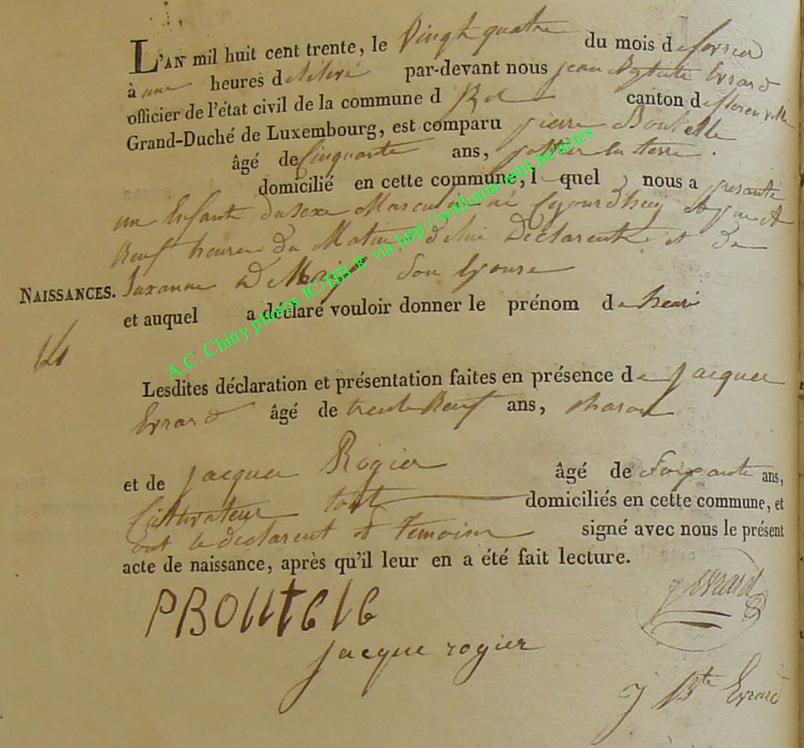 L'AN mil huit cent trente, le Vingt quatre du mois de fevrier
à une heures de relevé par-devant nous jean Baptiste Evrard
officier de l'état civil de la commune d canton de florenville
Grand-Duché de Luxembourg, est comparu pierre Boutelle
âgé de Cinquante ans, potier en terre
domicilié en cette commune, l quel nous a presenté
un Enfant du sexe Masculin né ajourdhuy
Neuf heure du Matin de lui Declarent et de
Suzanne son Epouse
NAISSANCES.
et auquel a déclaré vouloir donner le prénom de henri
Lesdites déclaration et présentation faites en présence de Jacque
Evrard âgé de trente Neuf ans, charon
et de jacque Rogier âgé de Soixante ans,
Cultivateur tout domiciliés en cette commune, et
ont le declarent et temoins signé avec nous le présent
acte de naissance, après qu'il leur en a été fait lecture.
PBOUtele
j evrard
jacque rogier
j Bte Evrard
A.C. Chiny photos JC/HB ® via http://wallonia-asbl.be/actes